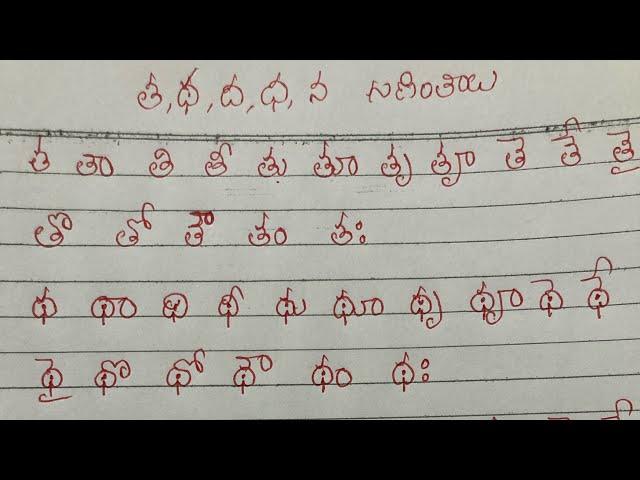 త, థ, ద, ధ, న గుణింతాలు
త తా తి తీ తు తూ తృ తౄ తె తే తై
తొ తో తౌ తం తః
థ థా థి థీ థు థూ థృ థౄ థె థే
థై థొ థో థౌ థం థః